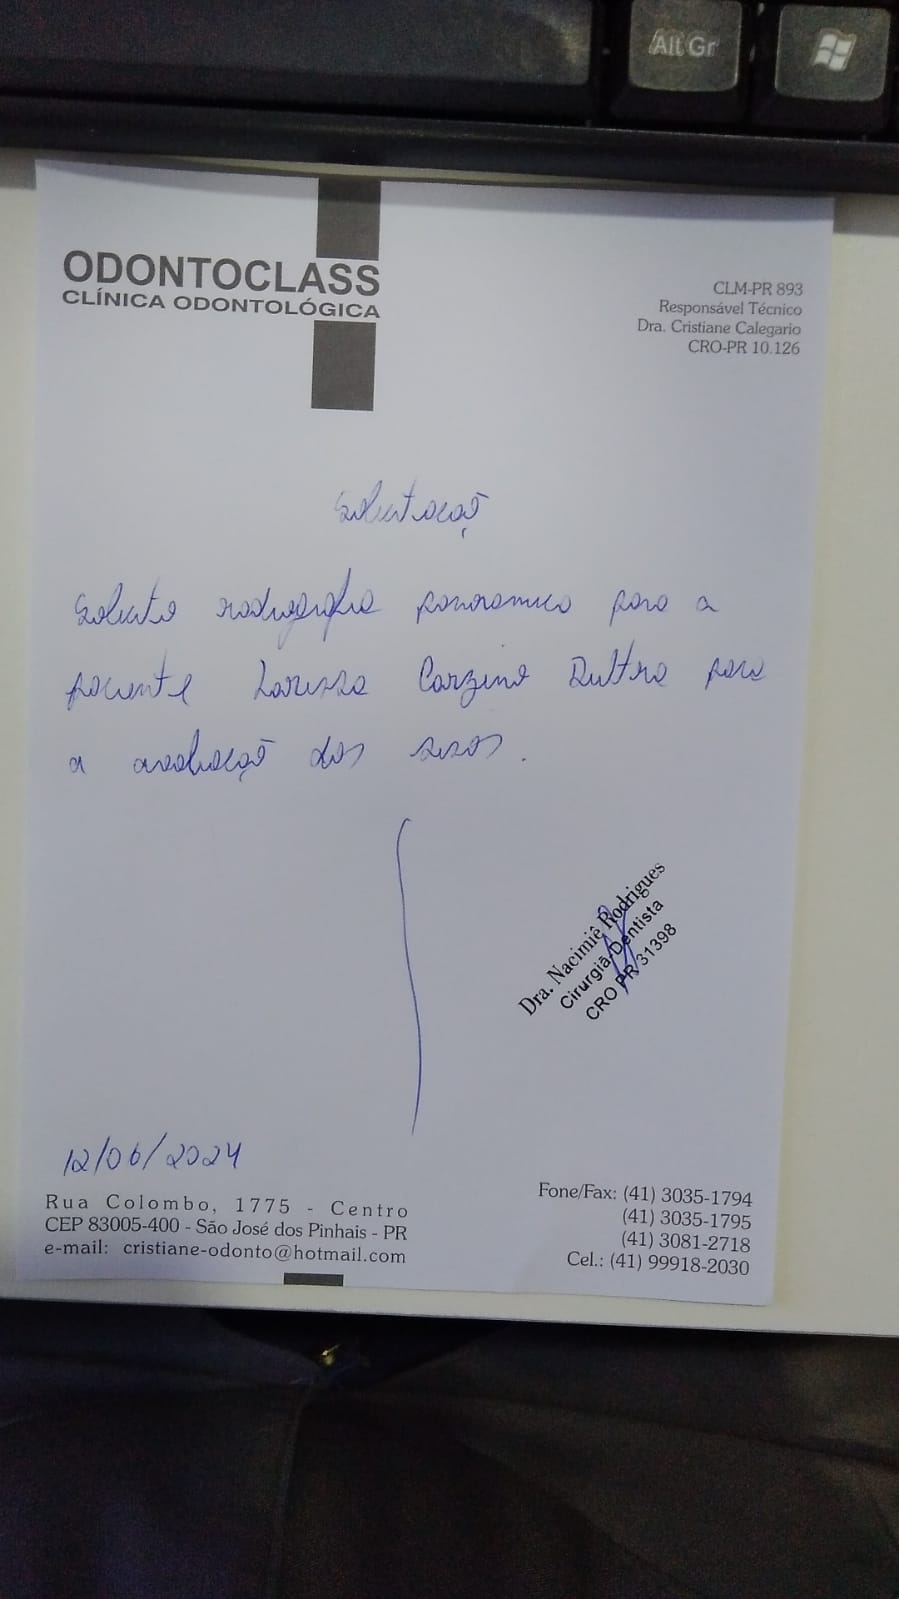 Alt Gr
ODONTOCLASS
CLÍNICA ODONTOLÓGICA
CLM-PR 893
Responsável Técnico
Dra. Cristiane Calegario
CRO-PR 10.126
Solicitação
Solicito radiografia panoramica para a
paciente Larissa Dultra para
a avaliação dos sisos.
Dra. Nacimiê Rodrigues
Cirurgiã-Dentista
CRO PR 31398
12/06/2024
Rua Colombo, 1775 - Centro
CEP 83005-400 - São José dos Pinhais - PR
e-mail: cristiane-odonto@hotmail.com
Fone/Fax: (41) 3035-1794
(41) 3035-1795
(41) 3081-2718
Cel.: (41) 99918-2030